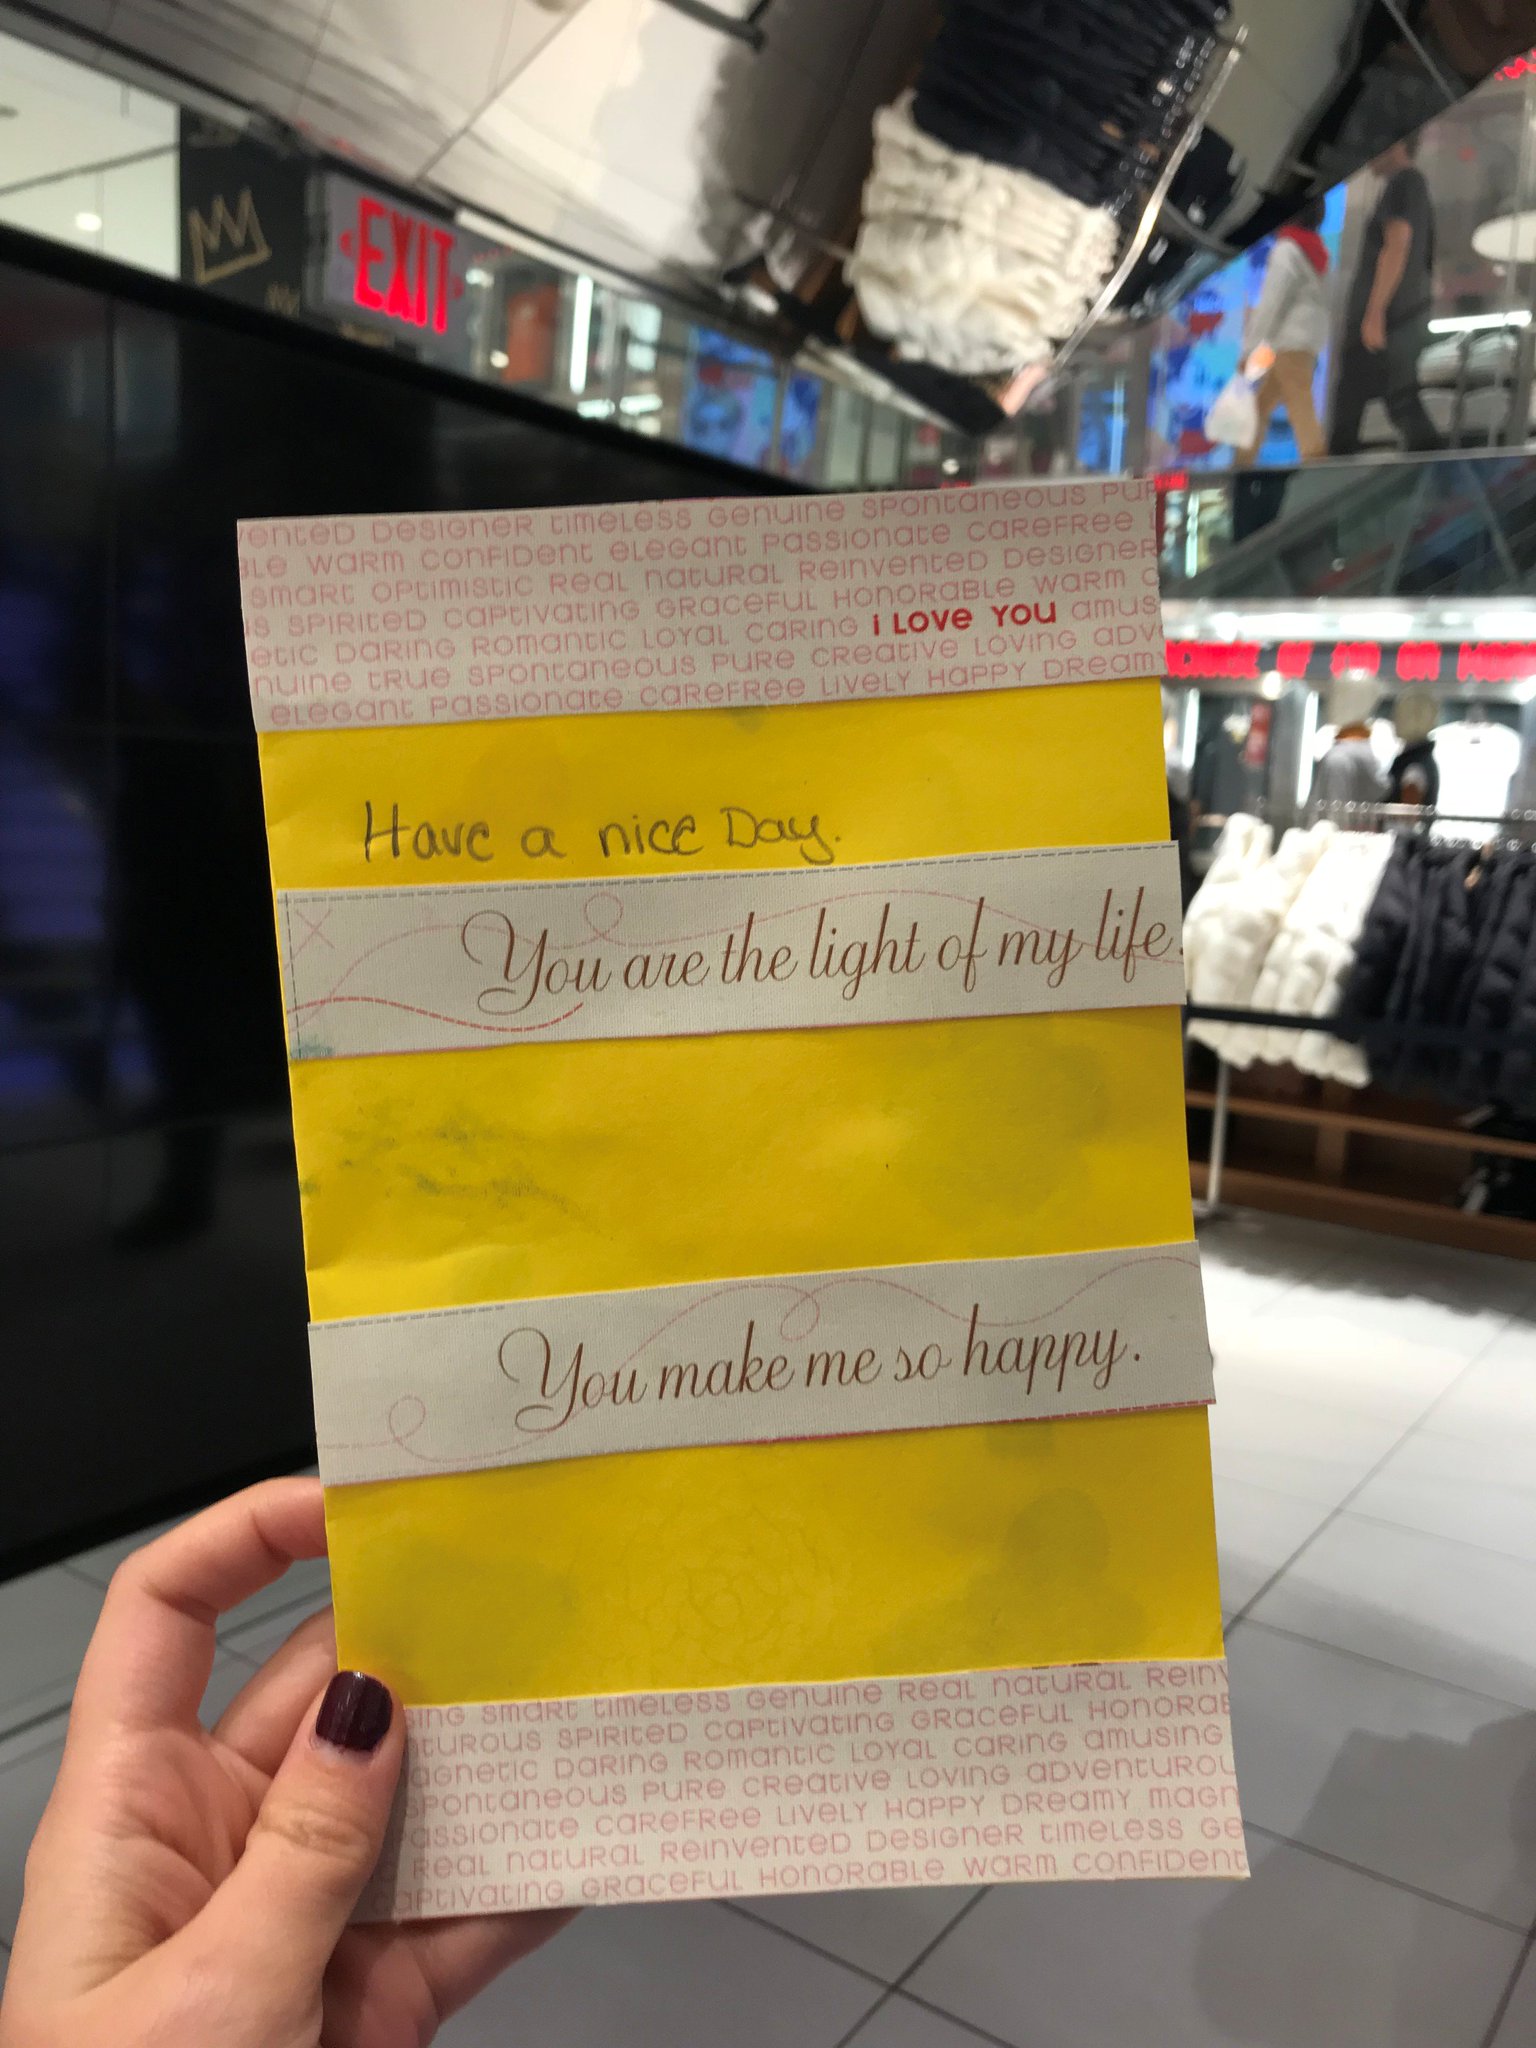 EXIT
VENTED DESIGNER TIMELESS GENUINE SPONTANEOUS PUR
BLE WARM CONFIDENT ELEGANT PASSIONATE CAREFREE L
SMART OPTIMISTIC REAL NATURAL REINVENTED DESIGNER
S SPIRITED CAPTIVATING GRACEFUL HONORABLE WARM C
ETIC DARING ROMANTIC LOYAL CARING i LOVE YOU AMUS
NUINE TRUE SPONTANEOUS PURE CREATIVE LOVING ADV
ELEGANT PASSIONATE CAREFREE LIVELY HAPPY DREAMY
Have a nice Day.
You are the light of my life.
You make me so happy.
SING SMART TIMELESS GENUINE REAL NATURAL REINV
NTUROUS SPIRITED CAPTIVATING GRACEFUL HONORAB
AGNETIC DARING ROMANTIC LOYAL CARING AMUSING
SPONTANEOUS PURE CREATIVE LOVING ADVENTUROU
PASSIONATE CAREFREE LIVELY HAPPY DREAMY MAGN
REAL NATURAL REINVENTED DESIGNER TIMELESS GE
CAPTIVATING GRACEFUL HONORABLE WARM CONFIDENT